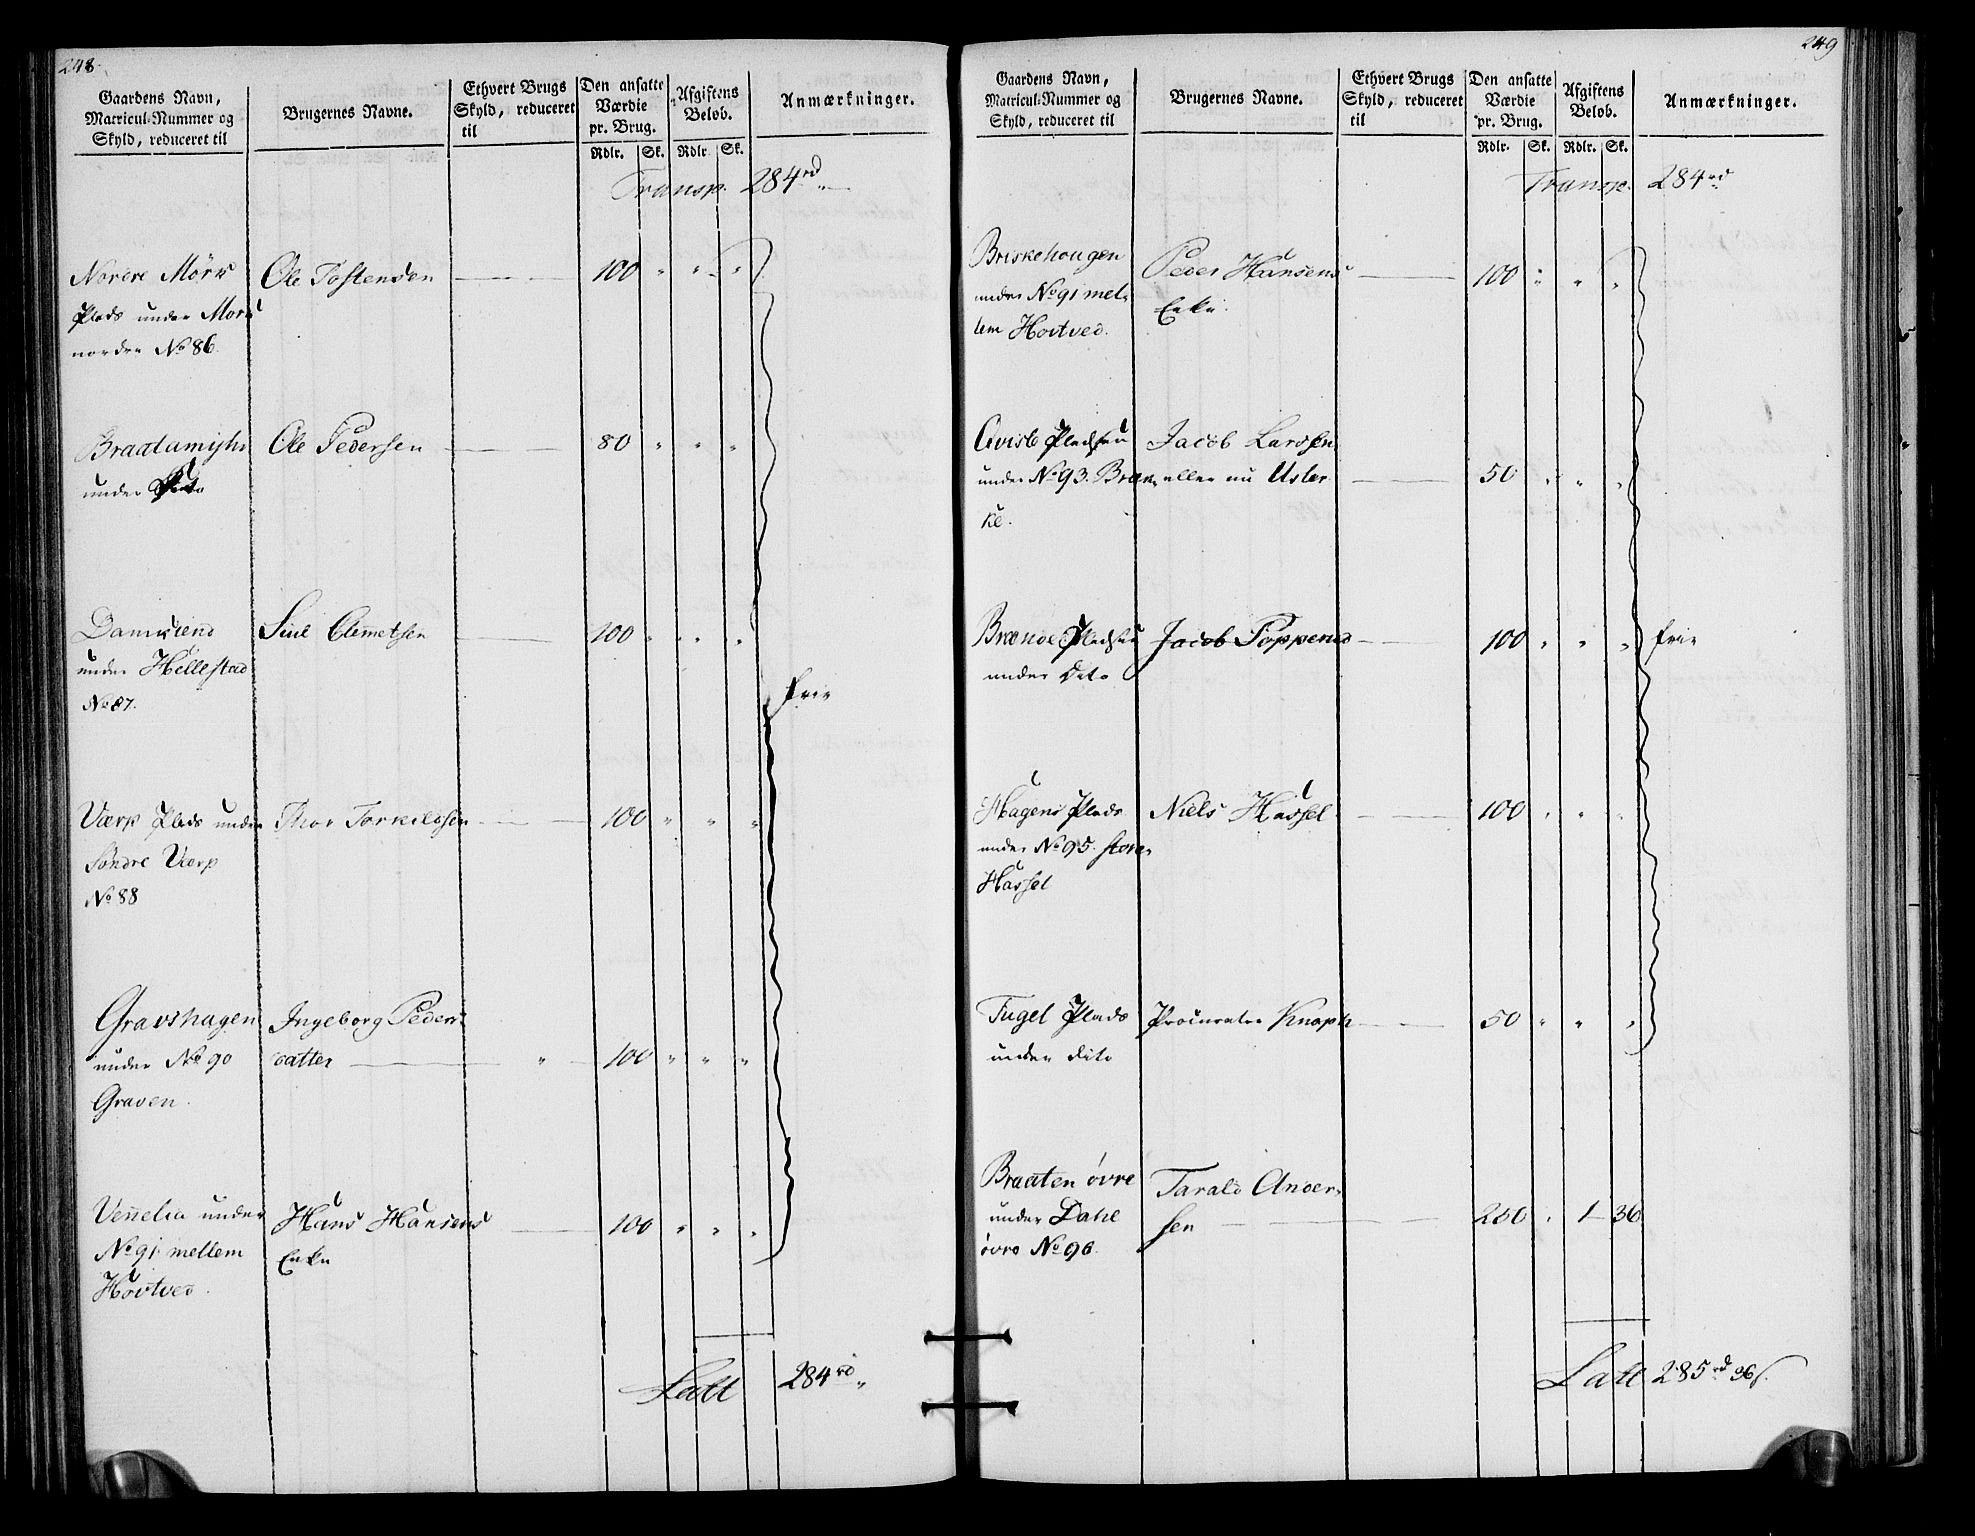 248.
Gaardens Navn,
Matricul-Nummer og
Skyld, reduceret til
Brugernes Navne.
Ethvert Brugs
Skyld, reduceret
til
Den ansatte
Værdie
pr. Brug.
Afgiftens
Beløb.
Anmærkninger.
Rdlr. Sk. Rdlr. Sk.
Transp. 284 rd "
Nordre Mörk Ole Tostensen 100 " " "
Plads under Mork
nordre No 86.
Ole Pedersen 80 " " "
under
Ole Clemetsen 100 " " "
under Hellestad
No 87.
frie
Værp Plads under Thor Torkildsen 100 " " "
Söndre Værp
No 88
Gravshagen Ingeborg Peders
under No 90 datter " 100 " " "
Graven.
Vennelia under Hans Hansens 100 " " "
No 91 mellem Enke
Hovtved.
Latt 284 rd "
249
Gaardens Navn,
Matricul-Nummer og
Skyld, reduceret til
Brugernes Navne.
Ethvert Brugs
Skyld, reduceret
til
Den ansatte
Værdie
pr. Brug.
Afgiftens
Beløb.
Anmærkninger.
Rdlr. Sk. Rdlr. Sk.
Transp. 284 rd
Briskehougen Peder Hansens 100 " " "
under No 91 mel-
Enke.
lem Hovtved.
Pladsen Jacob Larssen
under No 93. Bræn- eller nu Usler 50 " " "
ke.
Brænde Pladsen Jacob Toppens 100 " " " frie
under Dito
Hagens Plads Niels Hassel 100 " " "
under No 95. store
Hassel
Fugel Plads Procurator Knoph 50 " " "
under dito
Braaten övre Tarald Ander-
under Dahl sen 250 " 1 - 36
övre No 96.
Latt 285 rd 36 s.